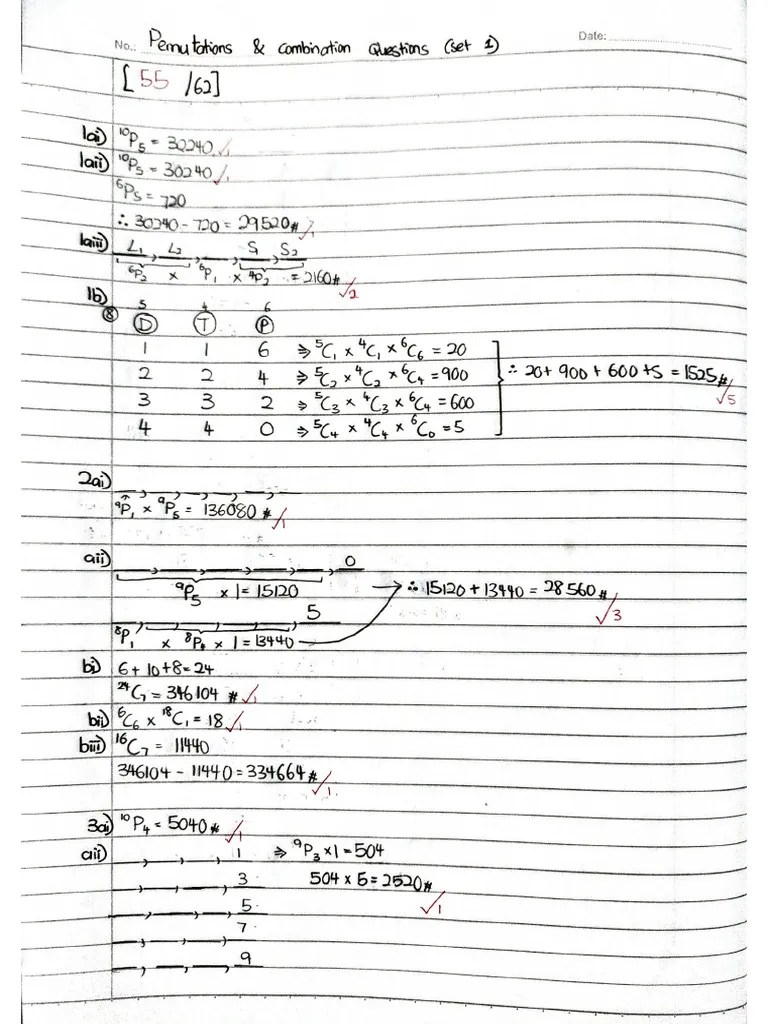 No.: Permutations & combination Questions (set 1) Date:
[55 /62]
1ai) ¹⁰P₅ = 30240 ✓1
1aii) ¹⁰P₅ = 30240 ✓1
⁶P₅ = 720
∴ 30240 - 720 = 29520# ✓1
1aiii) L₁, L₂, __, S₁, S₂
⁶P₂ × ⁶P₁ × ⁴P₂ = 2160# ✓2
1b) 5 4 6
⑧ Ⓓ Ⓣ Ⓟ
1 1 6 ⇒ ⁵C₁ × ⁴C₁ × ⁶C₆ = 20
2 2 4 ⇒ ⁵C₂ × ⁴C₂ × ⁶C₄ = 900
3 3 2 ⇒ ⁵C₃ × ⁴C₃ × ⁶C₄ = 600
4 4 0 ⇒ ⁵C₄ × ⁴C₄ × ⁶C₀ = 5
∴ 20 + 900 + 600 + 5 = 1525# ✓5
2ai) __, __, __, __, __, __
⁹P₁ × ⁹P₅ = 136080# ✓1
aii) __, __, __, __, __, 0
⁹P₅ × 1 = 15120
∴ 15120 + 13440 = 28560# ✓3
__, __, __, __, __, 5
⁸P₁ × ⁸P₄ × 1 = 13440
bi) 6 + 10 + 8 = 24
²⁴C₇ = 346104 # ✓1
bii) ⁶C₆ × ¹⁸C₁ = 18 ✓1
biii) ¹⁶C₇ = 11440
346104 - 11440 = 334664# ✓1
3ai) ¹⁰P₄ = 5040# ✓1
aii) __, __, __, 1 ⇒ ⁹P₃ × 1 = 504
__, __, __, 3 504 × 5 = 2520# ✓1
__, __, __, 5
__, __, __, 7
__, __, __, 9